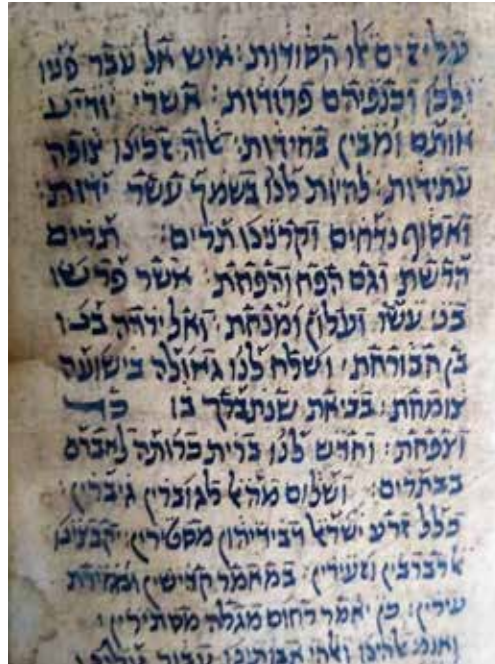 עליזים אז הסודות׃ איש אל עבר פניו
ילכון וכנפיהם פרודות׃ אשרי יודיע
אותם ומבין בחידות׃ צופה
עתידות׃ להיות לנו בשמך עשר ידות׃
ואסוף נדחים וקרנינו תרים׃ תרים
הרשת וגם הפח והפחת׃ אשר פרשו
בני עשו ועלון ומנחת׃ ואל ידדה בנו
בן חבורתת׃ ושלח לנו גאולה בישועה
צומחת׃ בביאת שנתבלך בו כד
וצפחת׃ וחדש לנו ברית כרותה לאברם
בבתרים׃ ושלום לגוברין גיברין׃
כלל זרע ישראל דבידיהון מסטירין׃ יקבצינו
רברבין וזעירין׃ במאמר קדישין וגזירת
עירין׃ כן יאמר רחום מגלה מסתירין׃
ואלהי אבותינו עבור